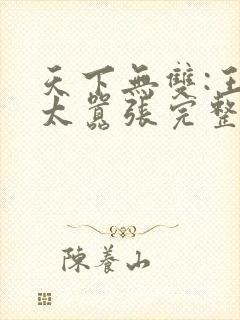 天下無雙:王
太囂張完整
陳養山